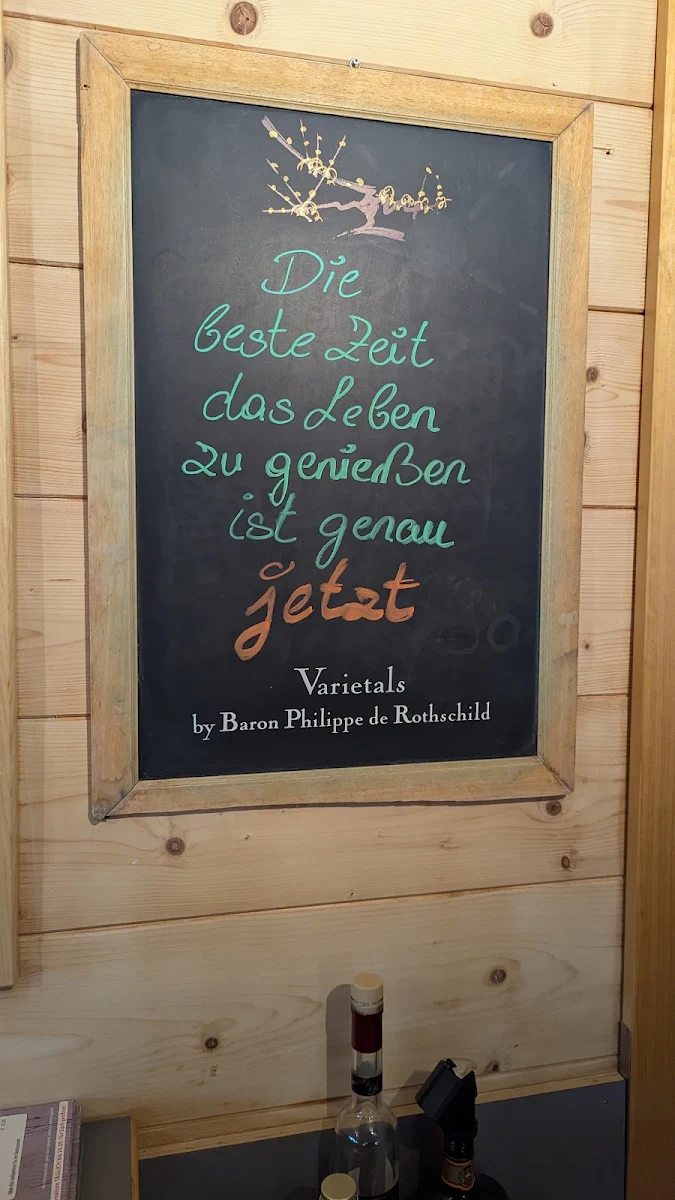 Die
beste Zeit
das Leben
zu genießen
ist genau
jetzt
Varietals
by Baron Philippe de Rothschild